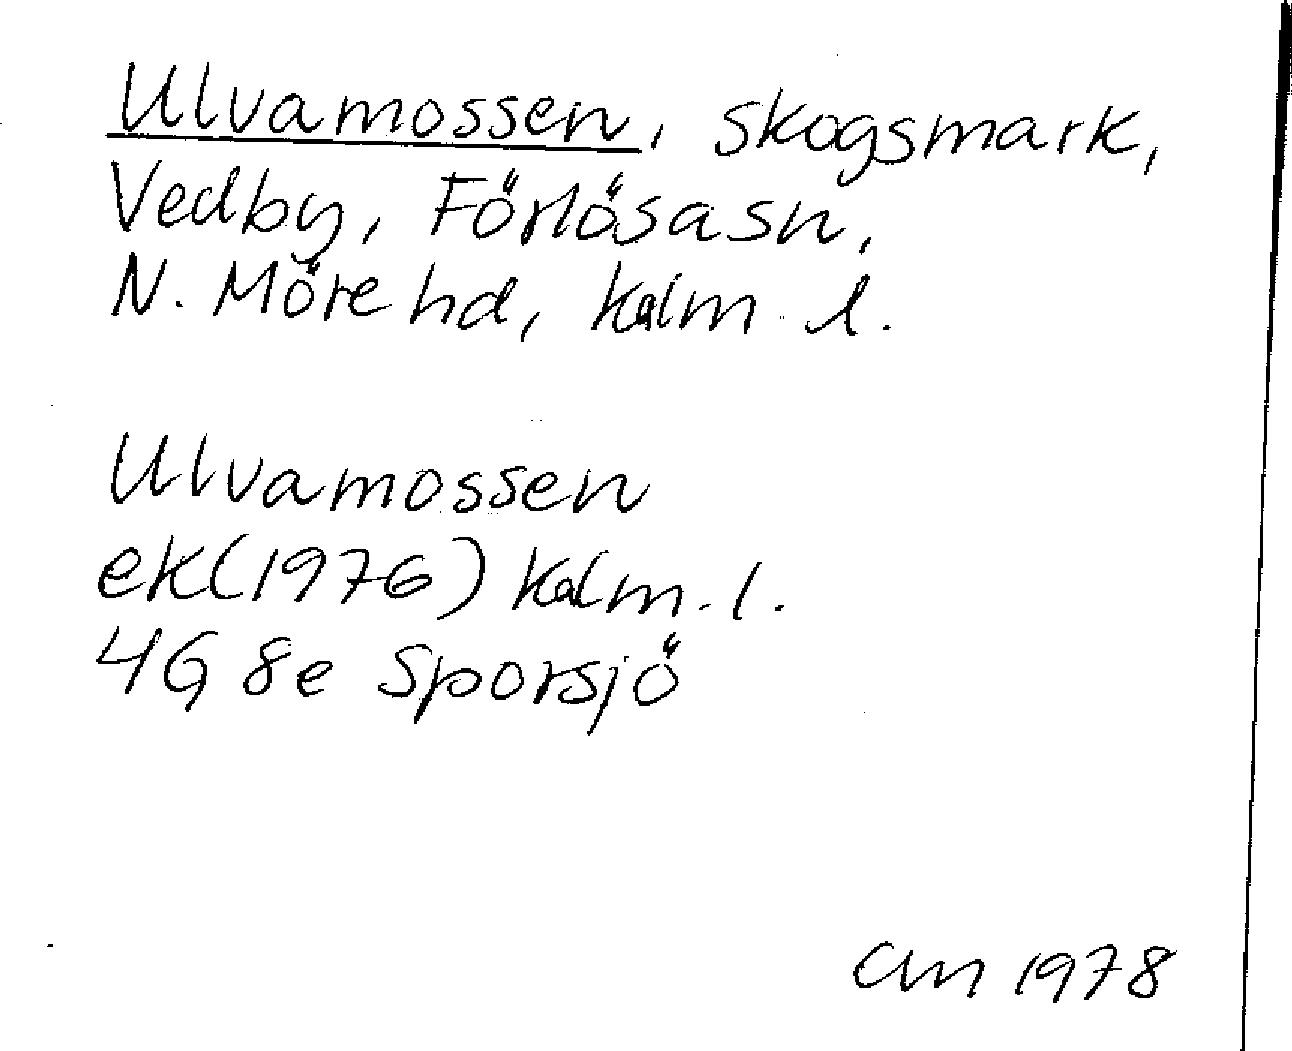 Ulvamossen, skogsmark,
Vedby, Förlösasn,
N. Möre hd, Kalm. l.
Ulvamossen
ek(1976) Kalm. l.
4G 8e Sporsjö
1978